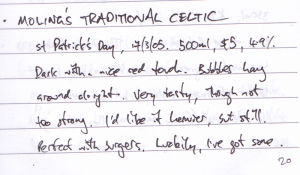 · MOLING'S TRADITIONAL CELTIC
St Patrick's Day, 17/3/05. 500ml, $5, 4.9%.
Dark with a nice red touch. Bubbles hang
around alright. Very tasty, though not
too strong. I'd like it heavier, but still.
Perfect with burgers. Luckily, I've got some.
20